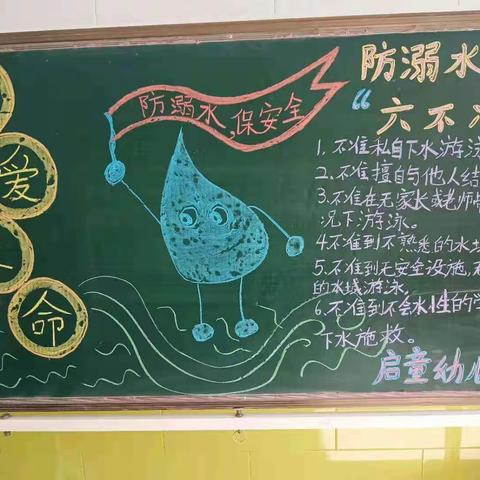 爱
命
防溺水,保安全
防溺水
“六不准
1.不准私自下水游泳
2.不准擅自与他人结
3.不准在无家长或老师带
况下游泳。
4.不准到不熟悉的水域
5.不准到无安全设施,无
的水域游泳。
6.不准到不会水性的学
下水施救。
启童幼儿